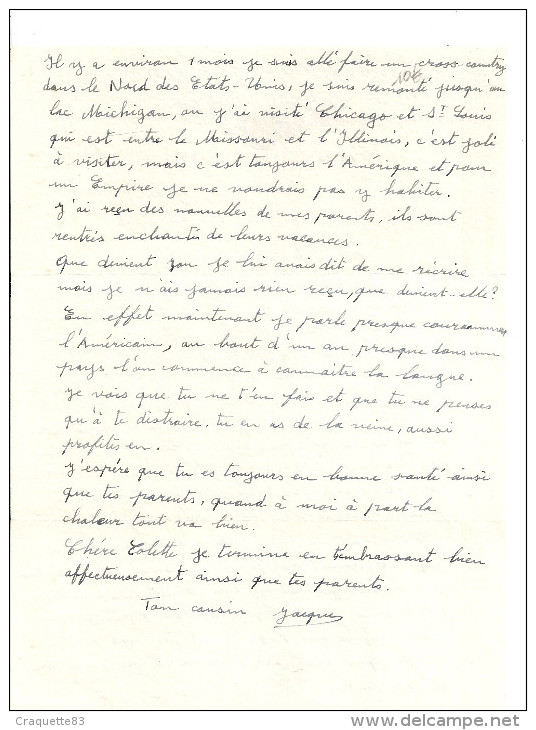 Il y a environ 1 mois je suis allé faire un cross-country
dans le Nord des Etats-Unis, je suis remonté jusqu'au
lac Michigan, ou j'ai visité Chicago et St Louis
qui est entre le Missouri et l'Illinois, c'est joli
à visiter, mais c'est toujours l'Amérique et pour
un Empire je ne voudrais pas y habiter.
J'ai reçu des nouvelles de mes parents, ils sont
rentrés enchantés de leurs vacances.
Que devient je lui avais dit de me récrire
mais je n'ais jamais rien reçu, que devient-elle?
En effet maintenant je parle presque couramment
l'Américain, au bout d'un an presque dans un
pays l'on commence à connaître la langue.
Je vois que tu ne t'en fais et que tu ne penses
qu'à te distraire, tu en as de la veine, aussi
profites en.
J'espère que tu es toujours en bonne santé ainsi
que tes parents, quand à moi à part la
chaleur tout va bien.
Chére Colette je termine en t'embrassant bien
affectueusement ainsi que tes parents.
Ton cousin Jacques
Craquette83
www.delcampe.net